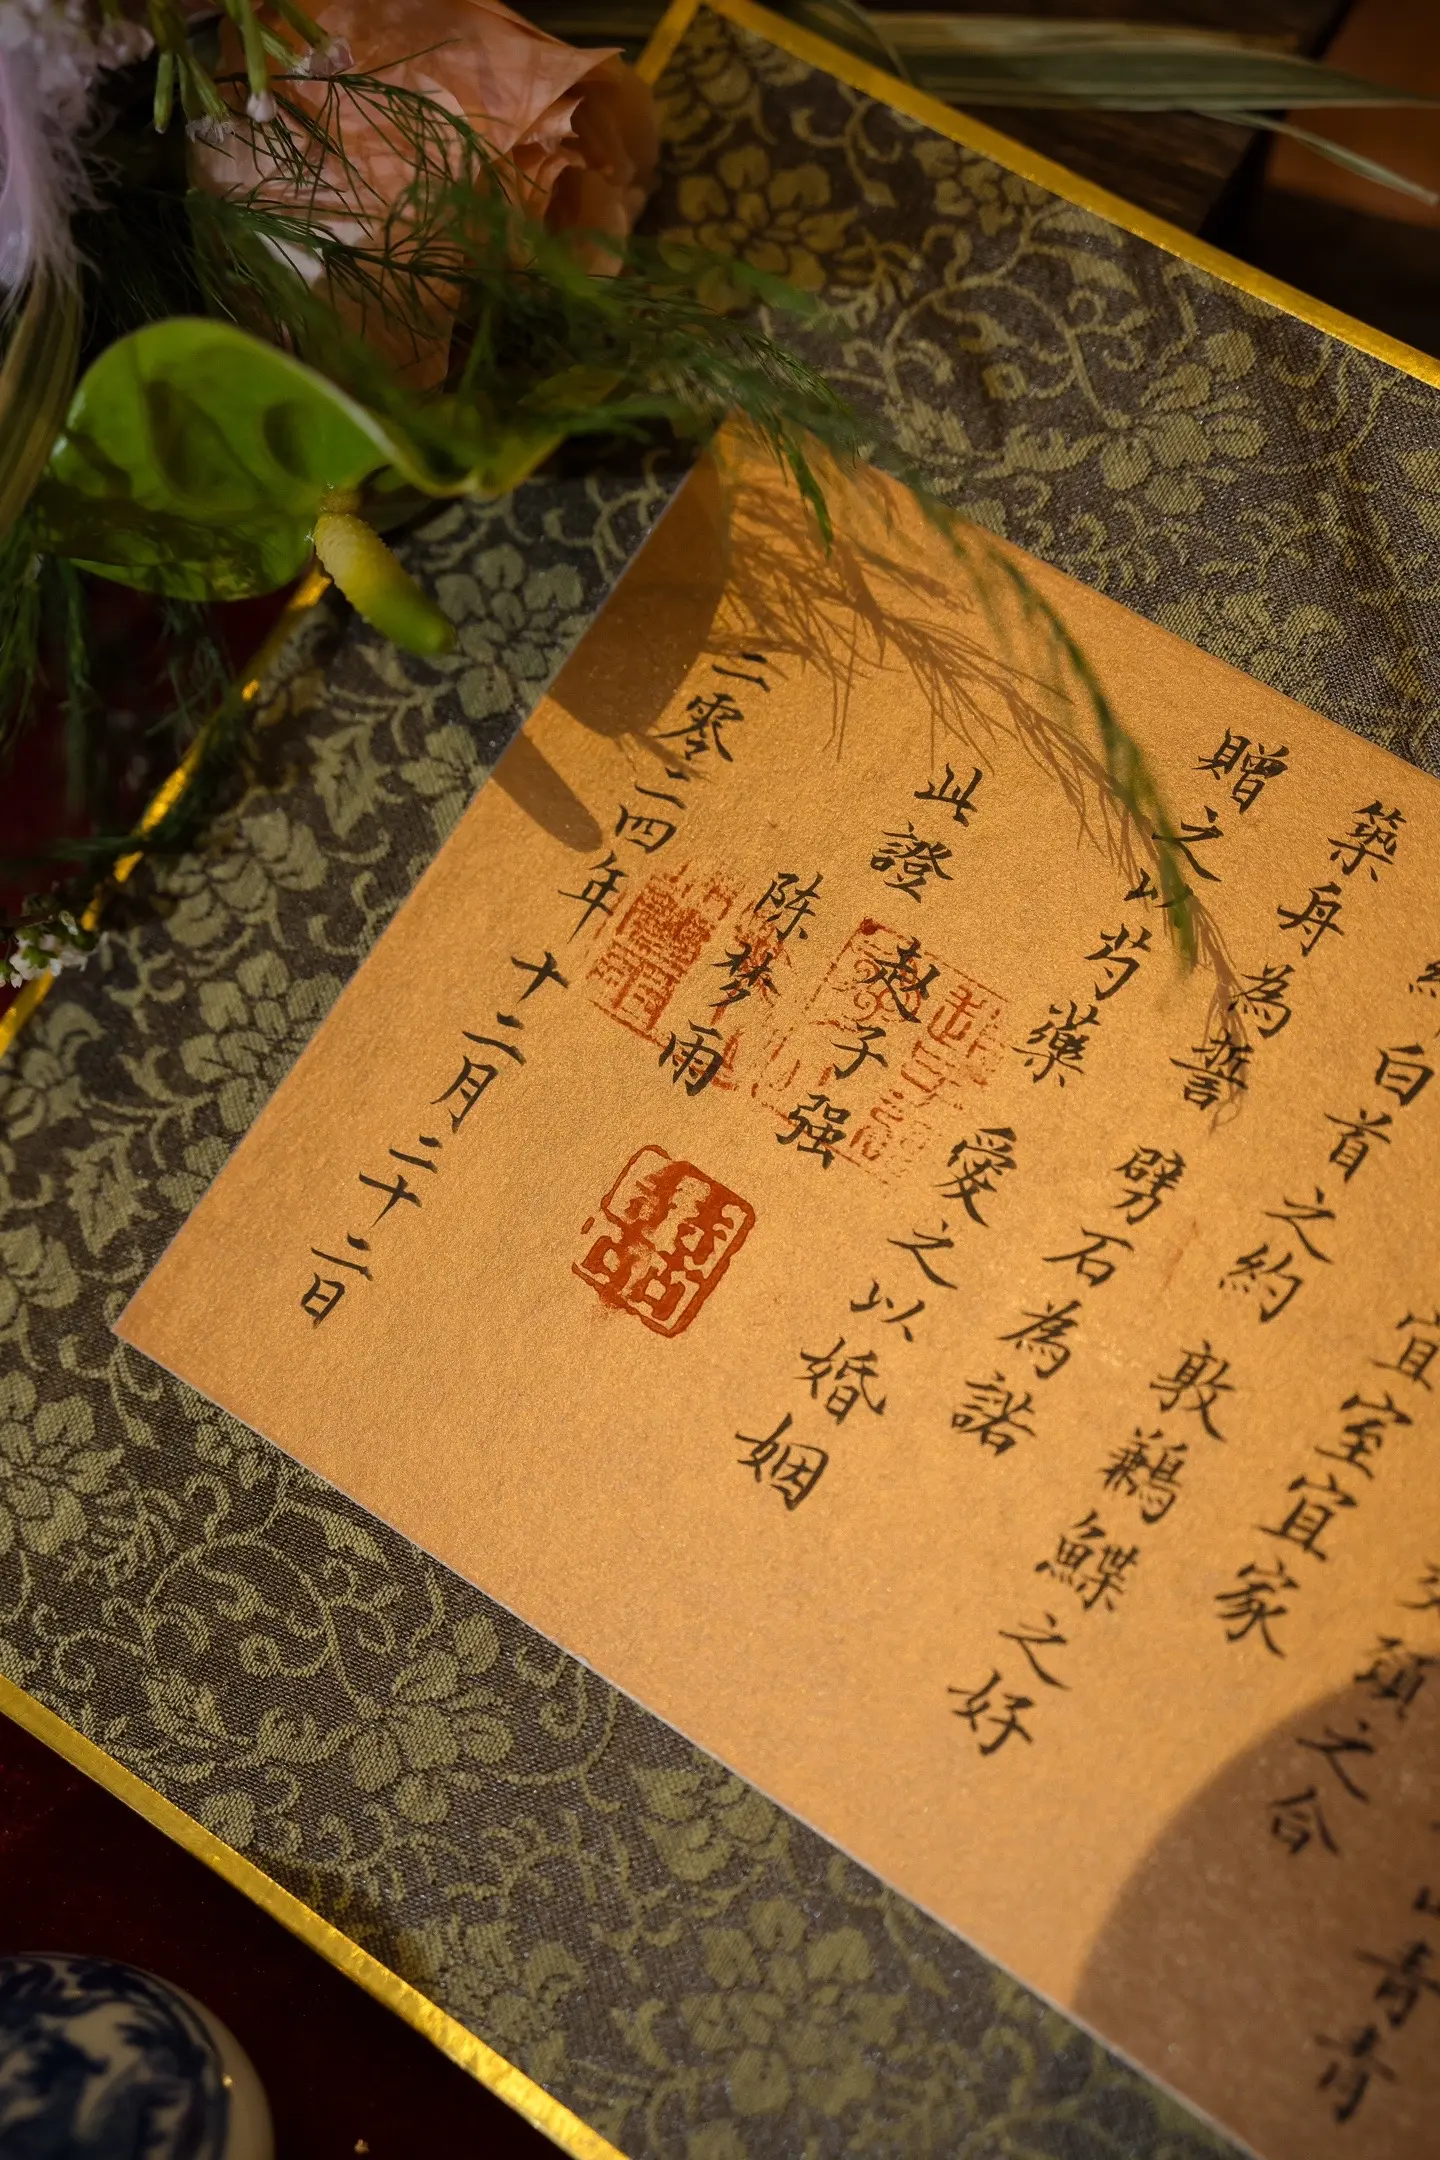 青青
之合
宜室宜家
白首之約 敦鶼鰈之好
築舟為誓 劈石為諾
贈之以芍藥 愛之以婚姻
此證
赵子强
陈梦雨
二零二四年十二月二十二日